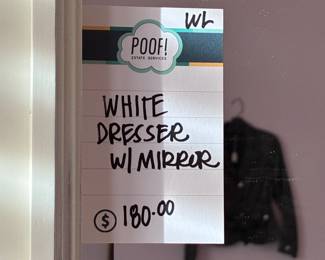 WL
POOF!
ESTATE SERVICES
WHITE
DRESSER
W/MIRROR
$ 180.00